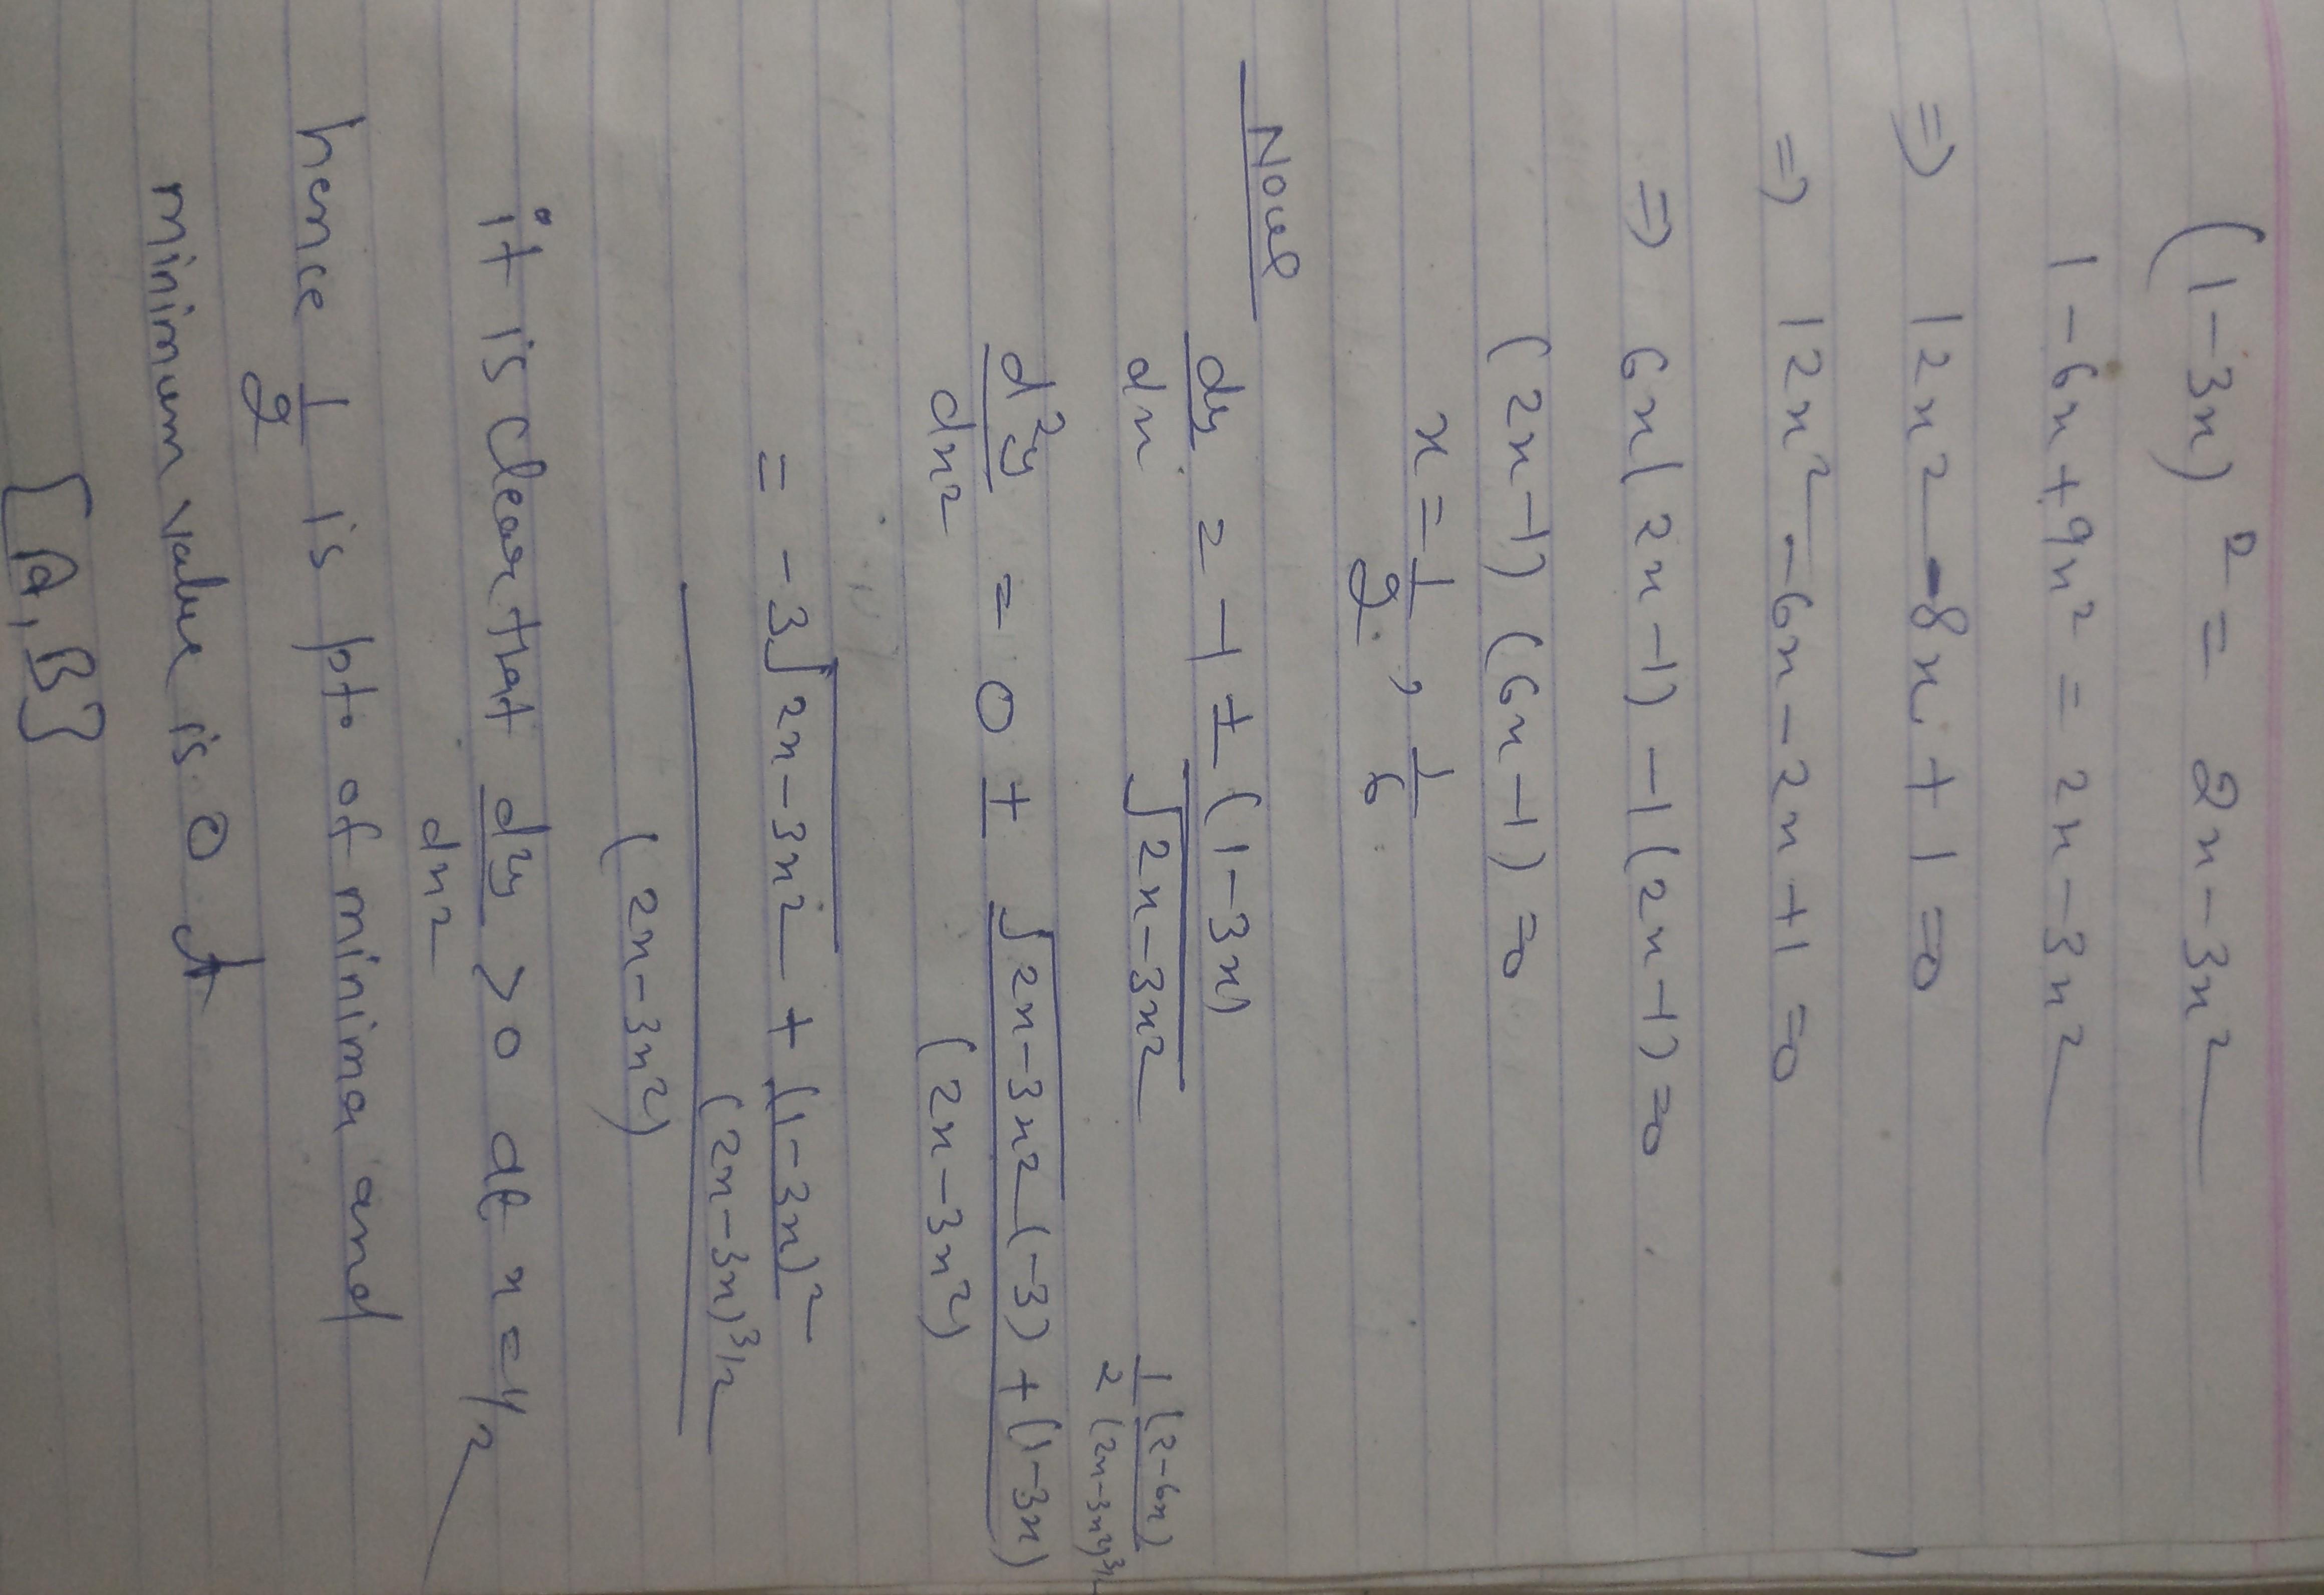 (1-3x)² = 2x-3x²
1-6x+9x² = 2x-3x²
=> 12x²-8x+1=0
=> 12x²-6x-2x+1=0
=> 6x(2x-1)-1(2x-1)=0
(2x-1)(6x-1)=0
x = 1/2, 1/6
Now dy/dx = -1 ± (1-3x)/√(2x-3x²)
1/2 (2-6x)/(2x-3x²)^3/2
d²y/dx² = 0 ± (√(2x-3x²)(-3)+(1-3x))/(2x-3x²)
= (-3√(2x-3x²) + (1-3x)²/(2x-3x)^3/2)/(2x-3x²)
it is clear that d²y/dx² > 0 at x=1/2
hence 1/2 is pt. of minima and
minimum value is 0
[A, B]